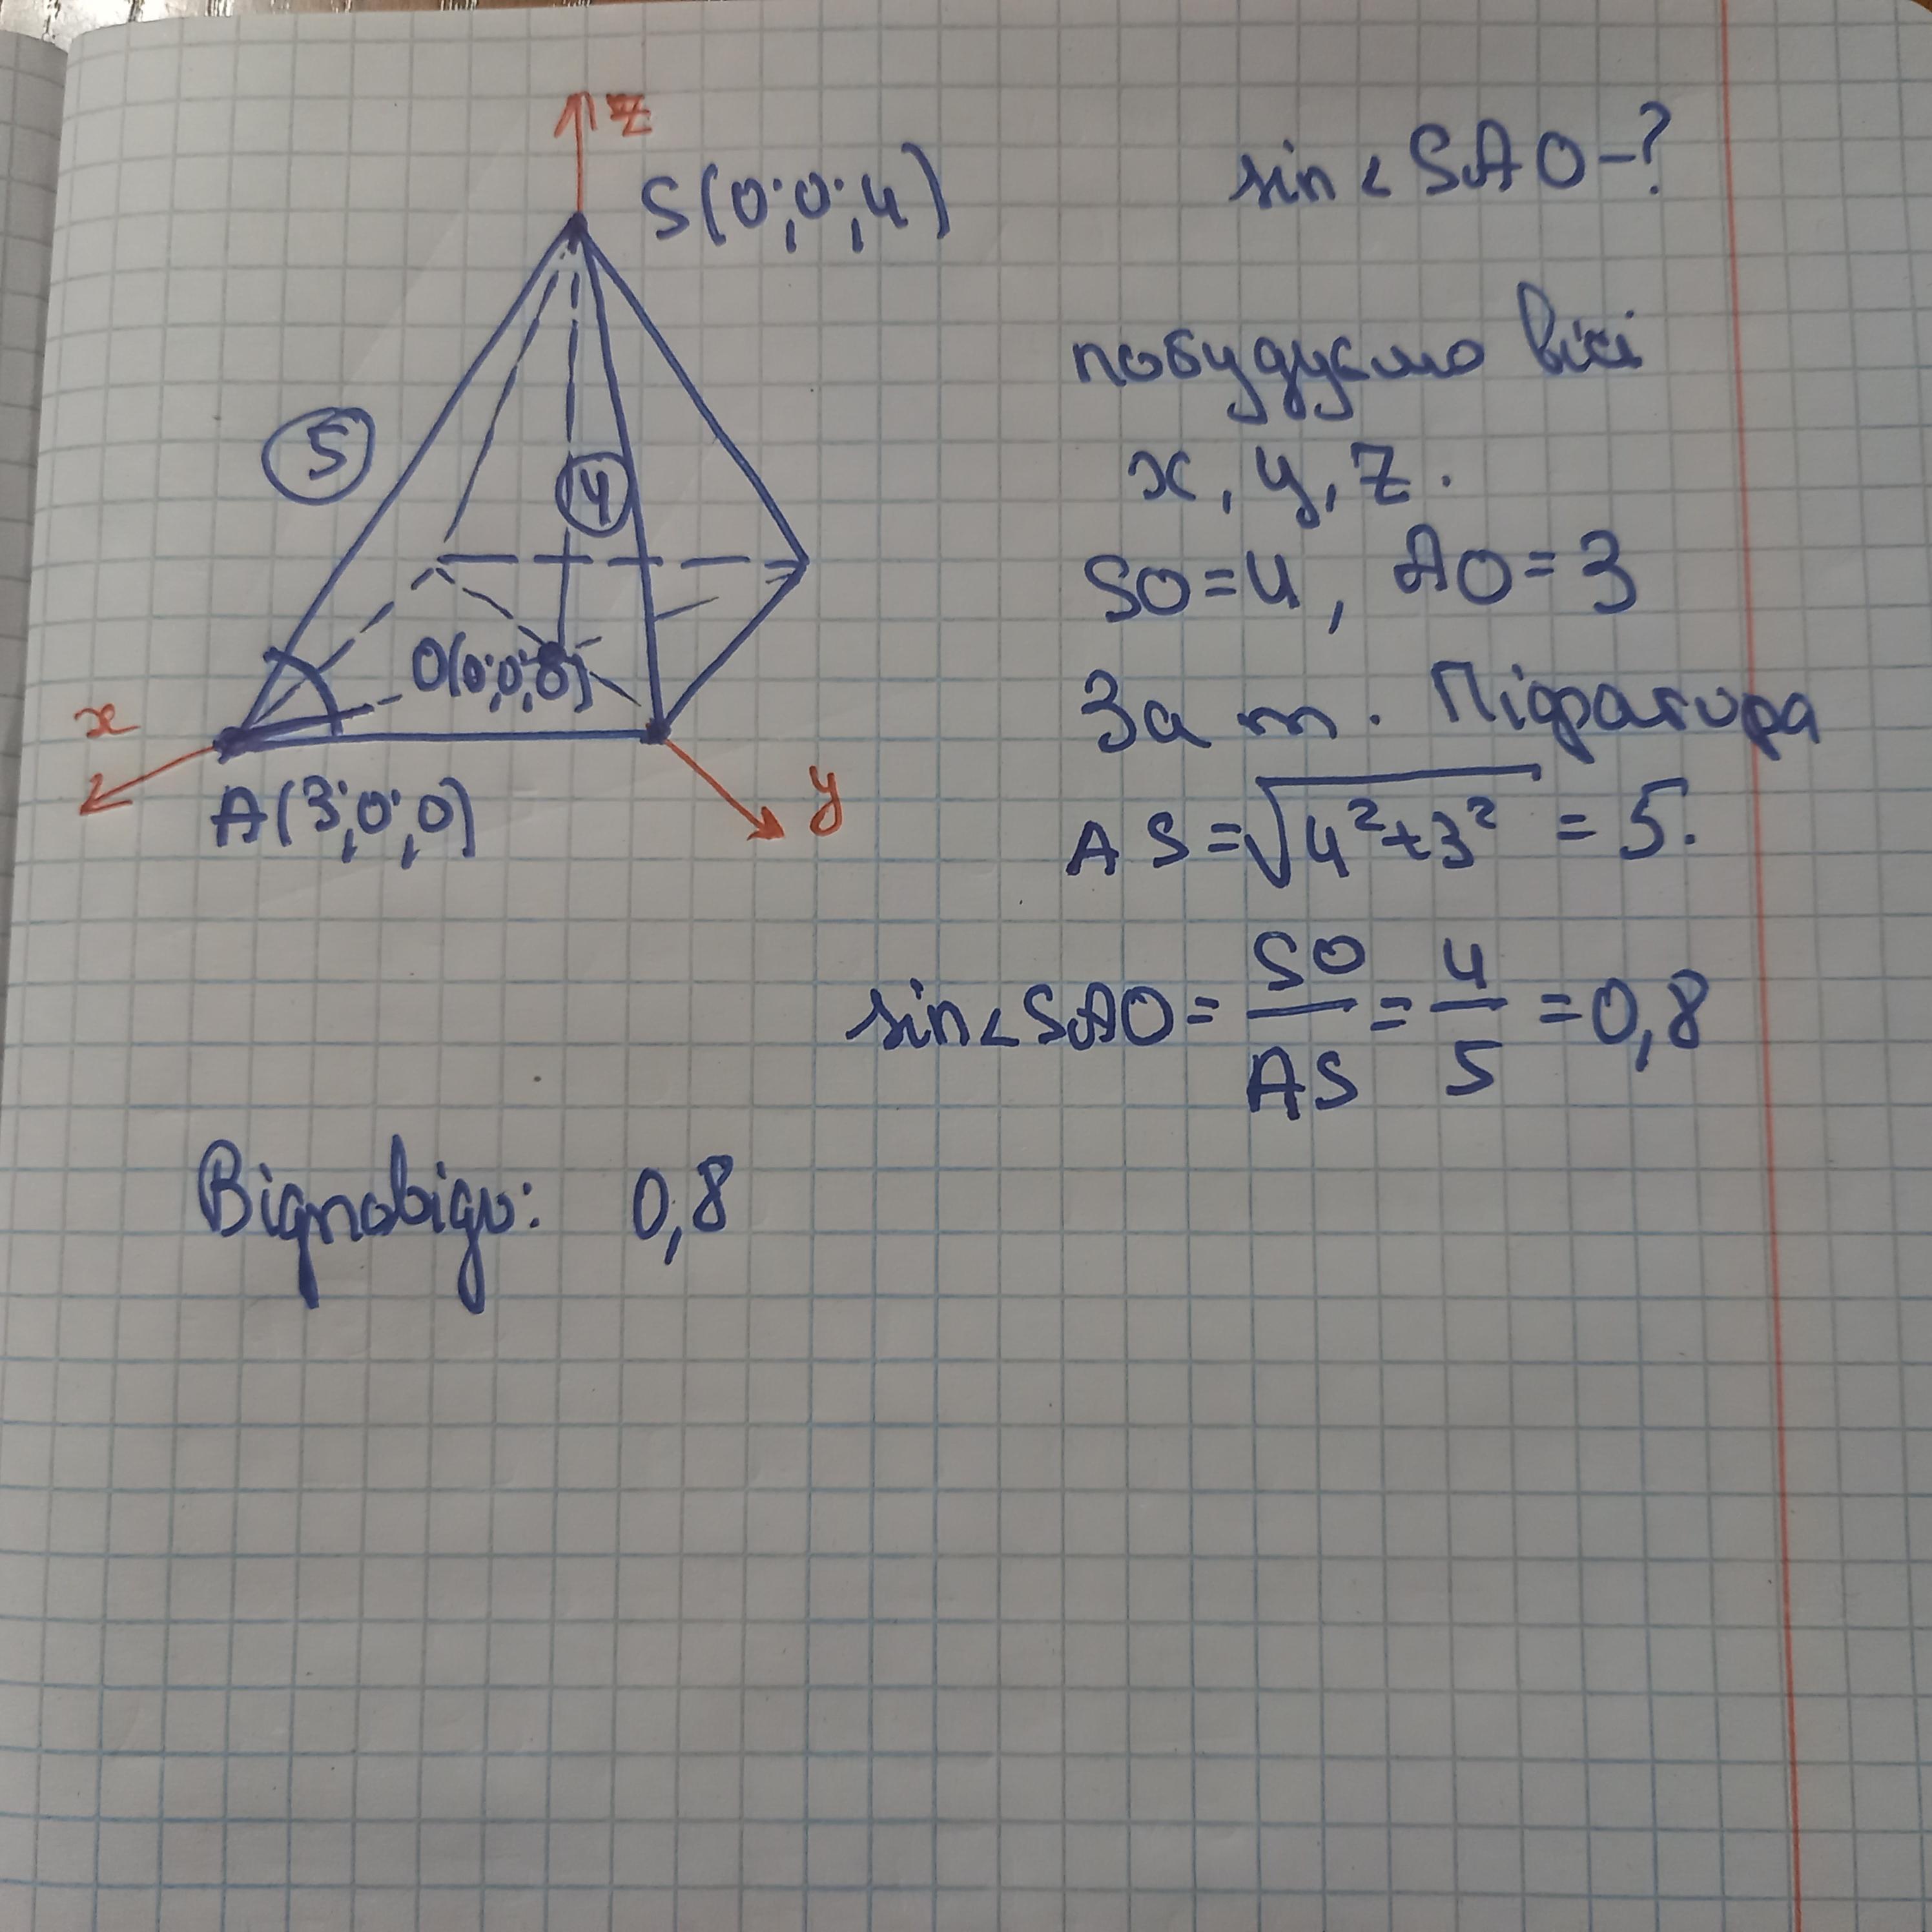 z
S(0;0;4)
5
4
O(0;0;0)
x
A(3;0;0)
y
sin∠SAO-?
побудуємо вісі
x, y, z.
SO=4, AO=3
За т. Піфагора
AS=√4²+3² = 5.
sin∠SAO= SO/AS = 4/5 =0,8
Відповідь: 0,8